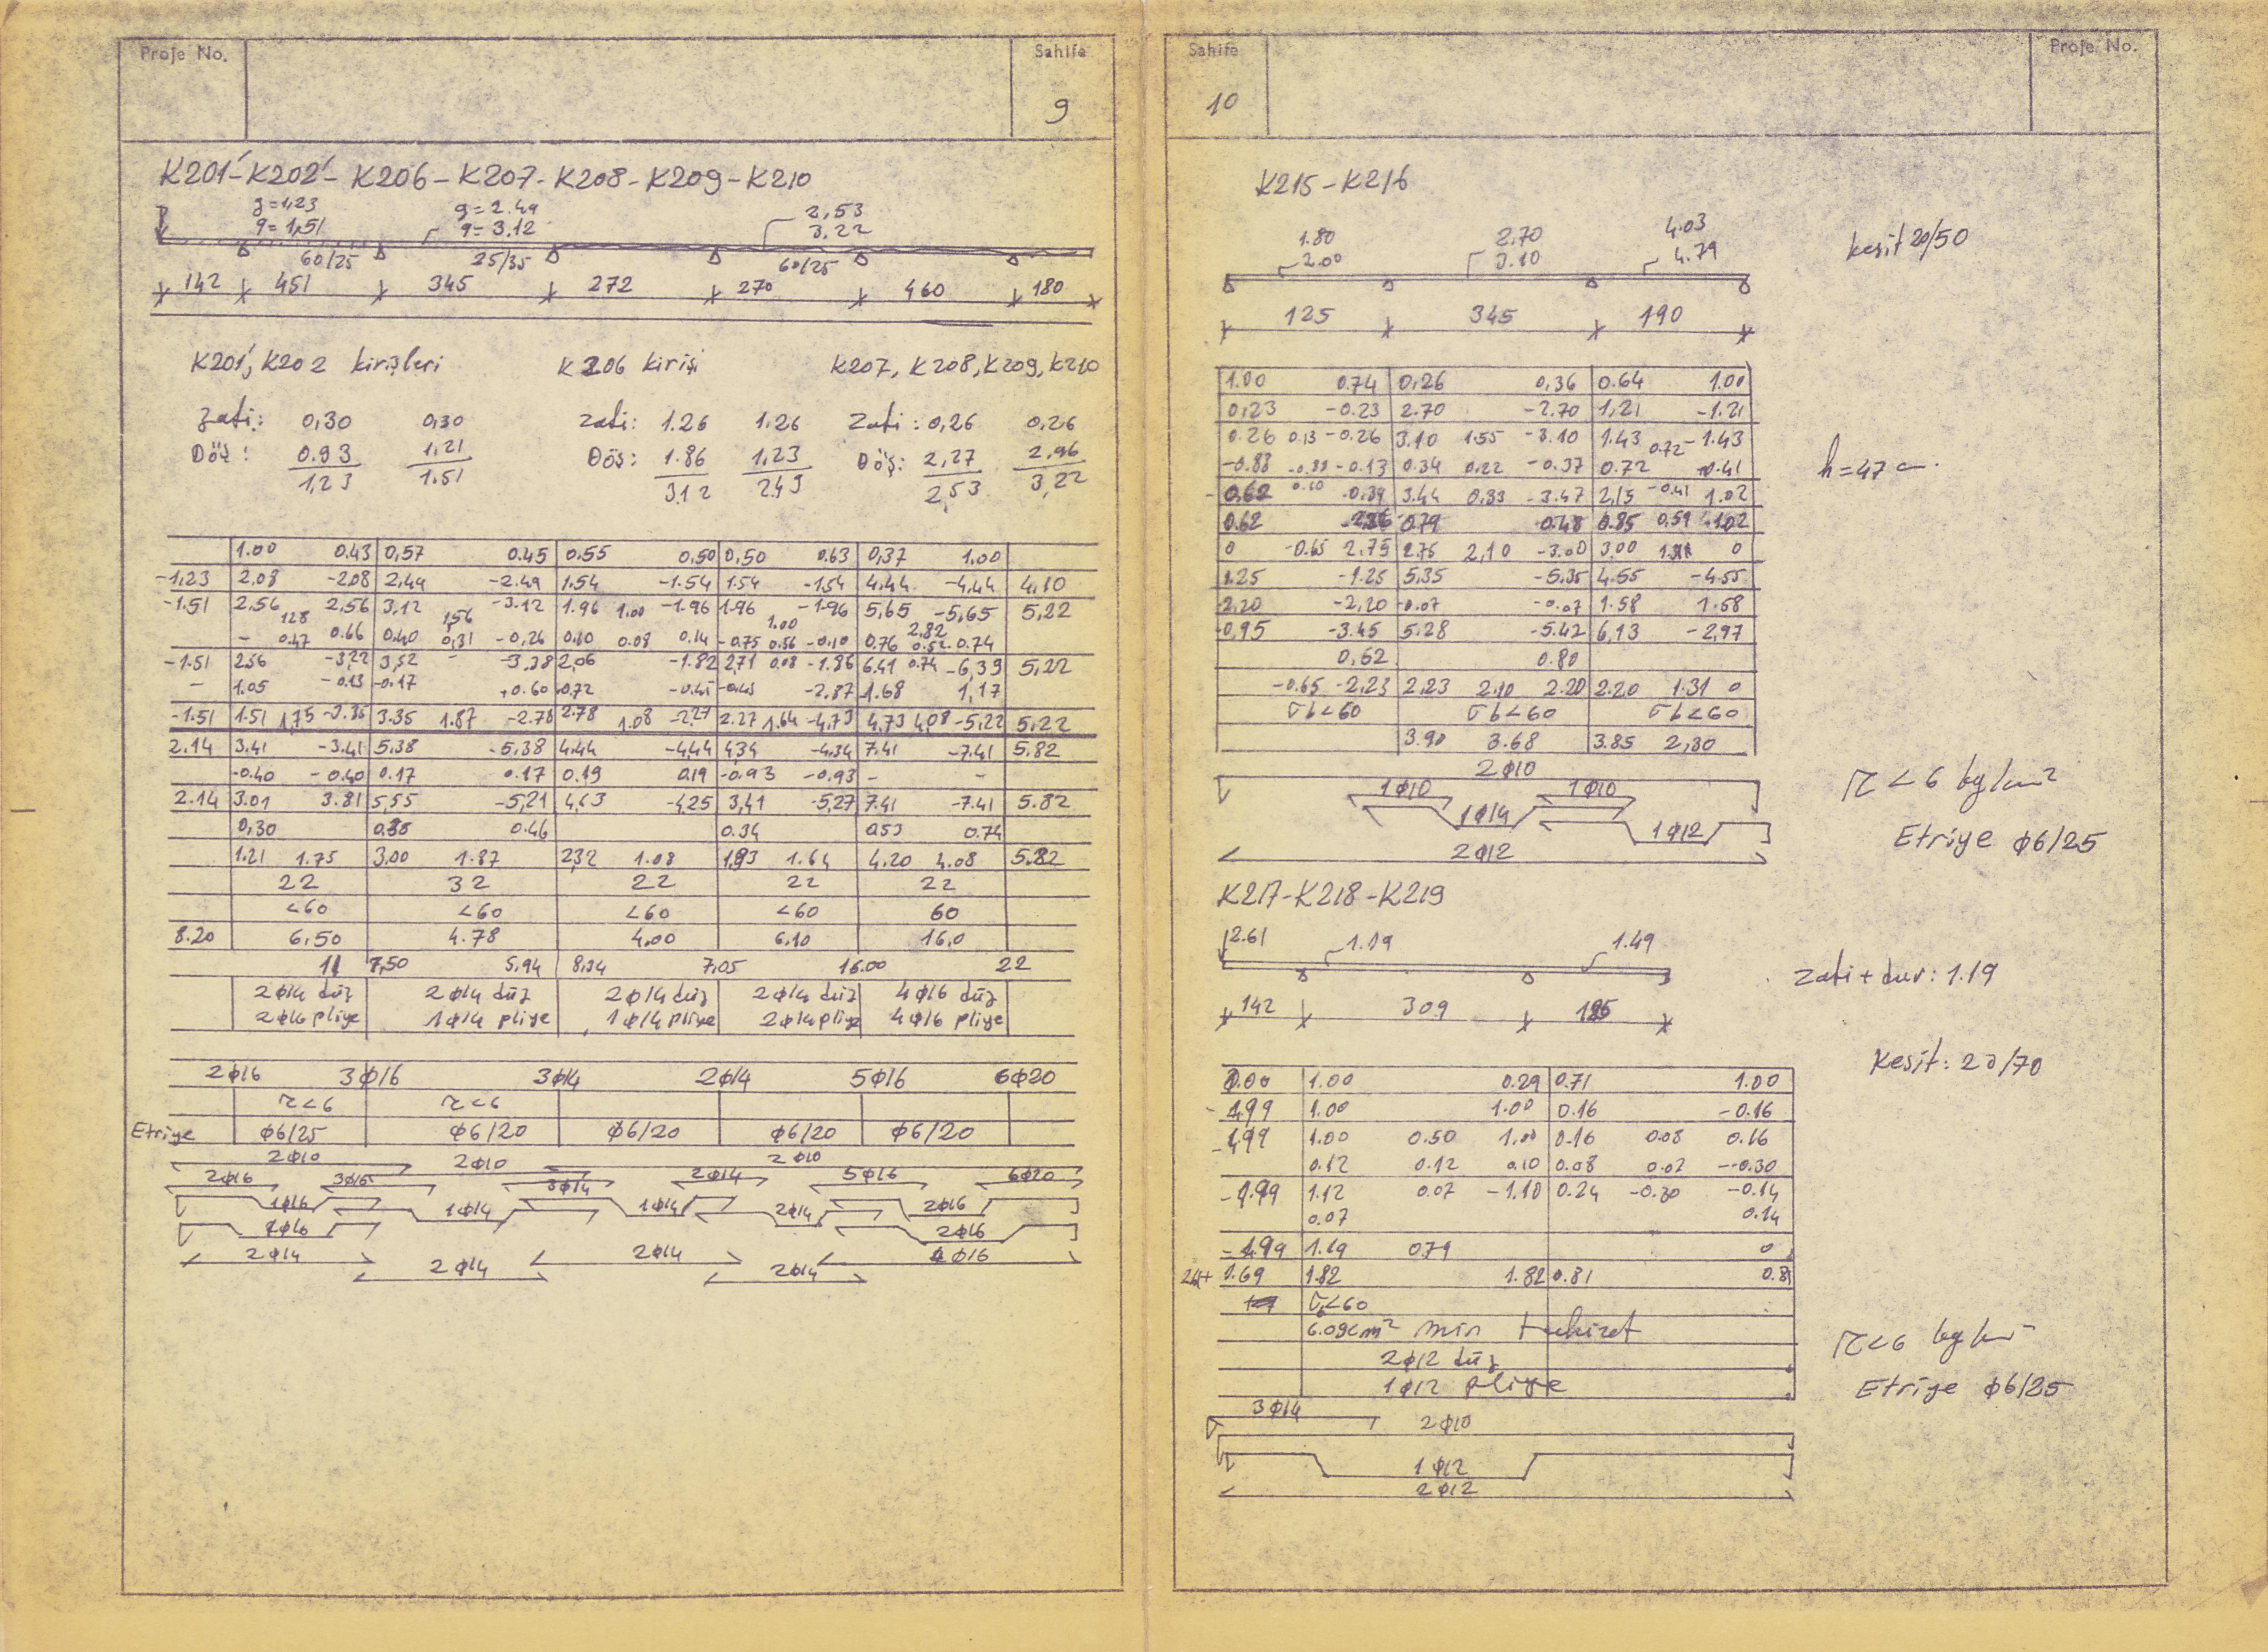 Proje No.
Sahife
9
K201'-K202'-K206-K207-K208-K209-K210
g=1,23 g=2.49 2,53
q=1,51 q=3.12 3.22
60/25 25/35 60/25
142 451 345 272 270 460 180
K201', K202 kirişleri K206 kirişi K207, K208, K209, K210
Zati: 0,30 0,30 Zati: 1.26 1.26 Zati: 0,26 0,26
Döş: 0.93 1,21 Döş: 1.86 1,23 Döş: 2,27 2,96
1,23 1.51 3.12 2.49 2,53 3,22
1.00 0.43 0,57 0.45 0.55 0,50 0,50 0.63 0,37 1.00
-1,23 2,08 -2,08 2,49 -2.49 1.54 -1.54 1.54 -1,54 4,44 -4,44 4,10
-1.51 2,56 128 2,56 3,12 1,56 -3.12 1.96 1.00 -1.96 1.96 1.00 -1.96 5,65 2,82 -5,65 5,22
- 0.47 0.66 0.40 0,31 -0,26 0,10 0.08 0.14 -0.75 0.56 -0.10 0,76 0.52 0.74
-1.51 2.56 -3,22 3,52 - -3.38 2,06 -1.82 2,71 0,08 -1.86 6.41 0.74 -6,39 5,22
- 1.05 -0.13 -0.17 +0.60 0.72 -0.45 -0.45 -2,87 1.68 1,17
-1.51 1.51 1,75 -3.35 3.35 1.87 -2.78 2.78 1.08 -2,27 2.27 1.64 -4,73 4,73 4,08 -5,22 5,22
2.14 3,41 -3.41 5,38 -5,38 4.44 -4,44 4,34 -4,34 7.41 -7.41 5.82
-0.40 -0.40 0.17 0.17 0,19 0.19 -0.93 -0,93 - -
2.14 3.01 3.81 5,55 -5,21 4,63 -4,25 3,41 -5,27 7.41 -7.41 5.82
0,30 0,85 0.46 0.34 0.53 0.74
1.21 1.75 3,00 1.87 2,32 1.08 1,93 1.64 4.20 4.08 5.82
22 32 22 22 22
<60 <60 <60 <60 60
8.20 6,50 4.78 4,00 6,10 16,0
11 7,50 5,94 8,34 7,05 16.00 22
2ϕ14 düz 2ϕ14 düz 2ϕ14 düz 2ϕ14 düz 4ϕ16 düz
2ϕ16 pliye 1ϕ14 pliye 1ϕ14 pliye 2ϕ14 pliye 4ϕ16 pliye
2ϕ16 3ϕ16 3ϕ14 2ϕ14 5ϕ16 6ϕ20
τ<6 τ<6
Etriye ϕ6/25 ϕ6/20 ϕ6/20 ϕ6/20 ϕ6/20
2ϕ10 2ϕ10 2ϕ10
2ϕ16 3ϕ16 3ϕ14 2ϕ14 5ϕ16 6ϕ20
1ϕ16 1ϕ14 1ϕ14 2ϕ14 2ϕ16
1ϕ16 2ϕ16
2ϕ14 2ϕ14 2ϕ14 2ϕ14 4ϕ16
Sahife
Proje No.
10
K215-K216
1.80 2.70 4.03
2.00 3.10 4.79
kesit 20/50
125 345 190
1.00 0.74 0,26 0,36 0.64 1.00
0,23 -0.23 2.70 -2.70 1,21 -1.21
0.26 0.13 -0.26 3.10 1.55 -3.10 1.43 0.72 -1.43
-0.88 -0.39 -0.13 0.34 0.22 -0.37 0.72 0.41
h=47
-0.62 0.10 -0.39 3.44 0.33 -3.47 2,15 -0.41 1.02
0.62 0.79 -0.48 0.85 0,59 -1.02
0 -0.65 2.75 2.75 2,10 -3.00 3,00 0
1.25 -1.25 5,35 -5,35 4.55 -4.55
-2,20 -2,20 -0.07 -0.07 1.58 1.58
-0,95 -3.45 5.28 -5.42 6,13 -2,97
0,62 0.80
-0.65 -2,23 2,23 2.10 2.20 2.20 1.31 0
σb<60 σb<60 σb<60
3.90 3.68 3.85 2,30
2ϕ10
1ϕ10 1ϕ10
1ϕ14 1ϕ12
2ϕ12
τ<6 kg/cm²
Etriye ϕ6/25
K217-K218-K219
2.61 1.19 1.49
zati+duv: 1.19
142 309 195
Kesit: 20/70
0.00 1.00 0.29 0.71 1.00
-4.99 1.00 1.00 0.16 -0.16
-4.99 1.00 0.50 1.00 0.16 0.08 0.16
0.12 0.12 0.10 0.08 0.02 -0.30
-4.99 1.12 0.07 -1.10 0.24 -0.30 -0.14
0.07 0.14
-4.99 1.19 0.79 0
0.69 1.82 1.82 0.81 0.81
σb<60
6.09cm² min techizat
2ϕ12 düz
1ϕ12 pliye
τ<6 kg/cm²
Etriye ϕ6/25
3ϕ14 2ϕ10
1ϕ12
2ϕ12